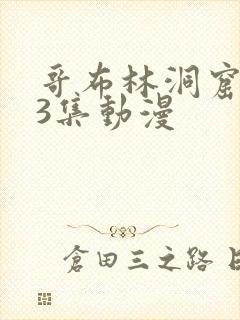 哥布林洞窟
3集動漫
倉田三之路